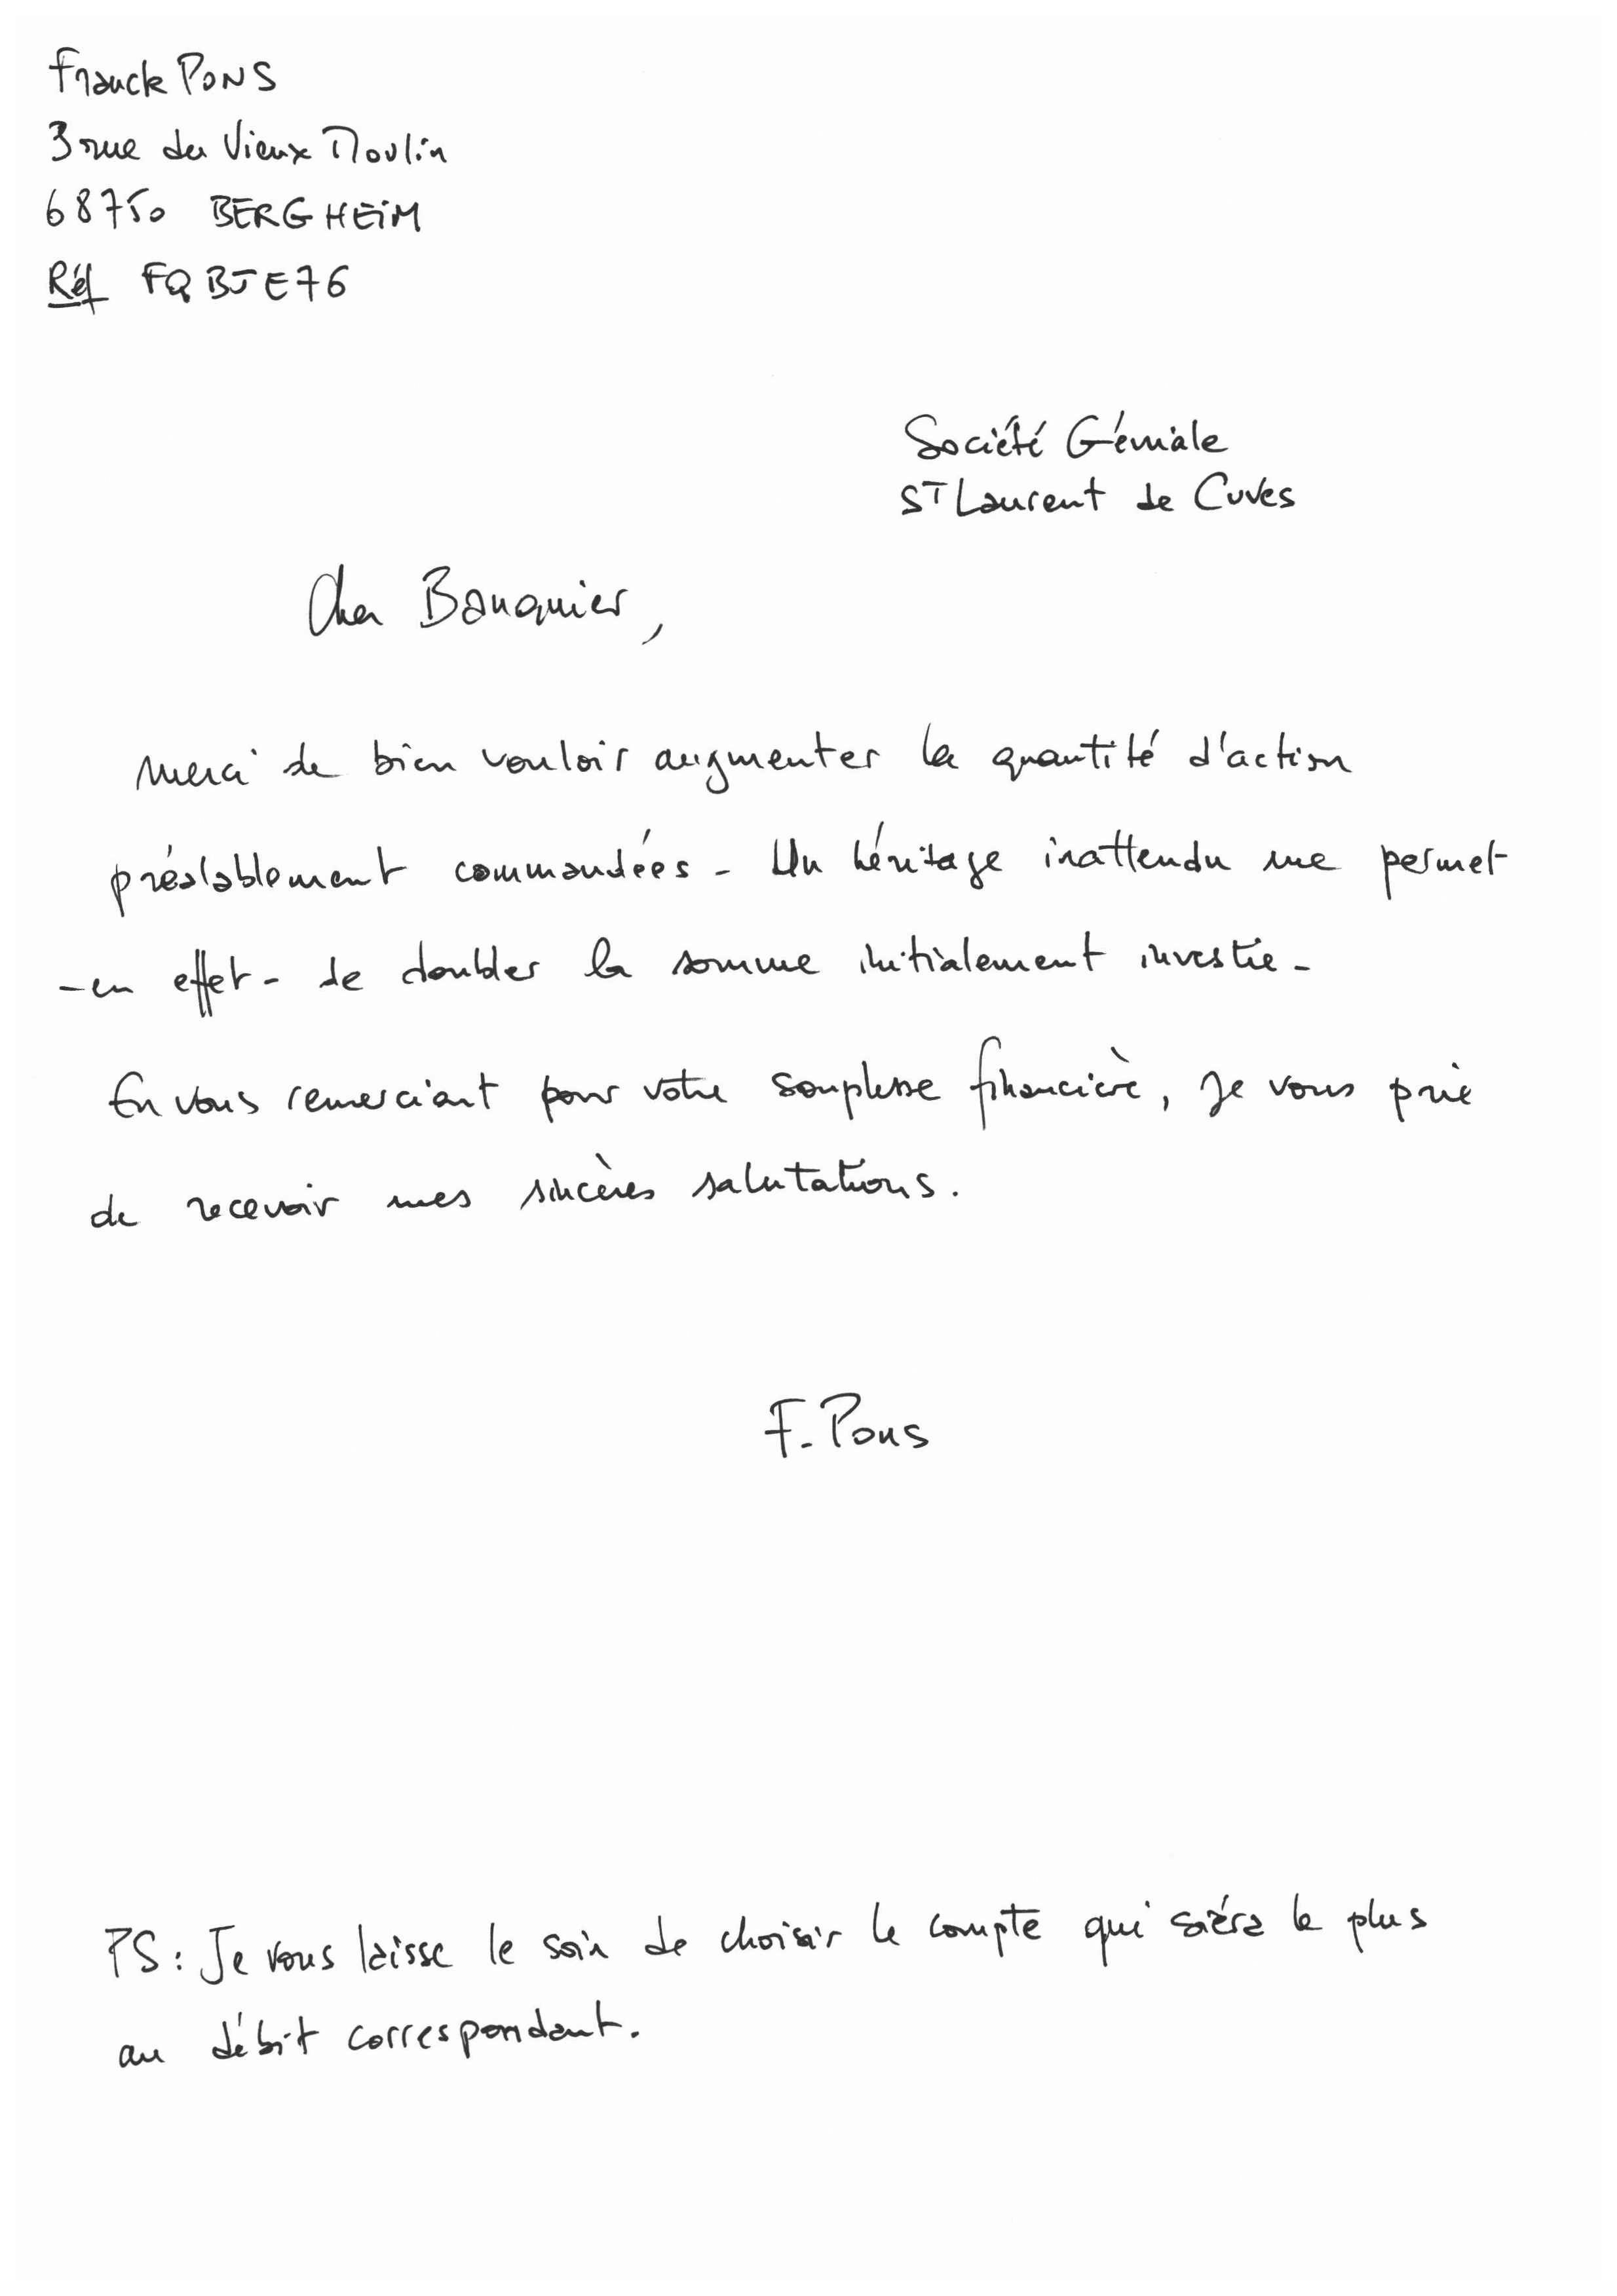 Franck PONS
3 rue du Vieux Moulin
68750 BERGHEIM
Réf FQBJE76
Société Géniale
ST Laurent de Cuves
Cher Banquier,
Merci de bien vouloir augmenter la quantité d'action
préalablement commandées - Un héritage inattendu me permet
- en effet - de doubler la somme initialement investie -
En vous remerciant pour votre souplesse financière, je vous prie
de recevoir mes sincères salutations.
F. Pons
PS : Je vous laisse le soin de choisir le compte qui siéra le plus
au débit correspondant.